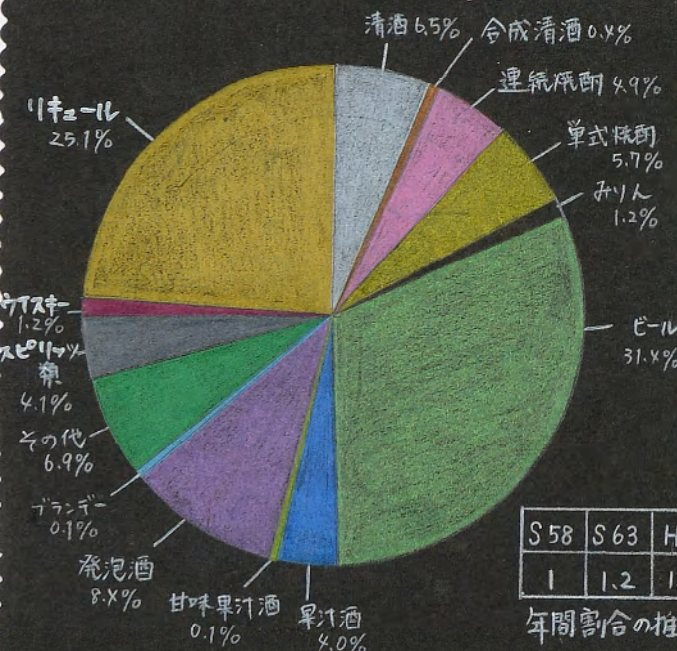 清酒 6.5%
合成清酒 0.4%
連続焼酎 4.9%
単式焼酎
5.7%
みりん
1.2%
ビール
31.4%
果汁酒
4.0%
甘味果汁酒
0.1%
発泡酒
8.4%
ブランデー
0.1%
その他
6.9%
スピリッツ
類
4.1%
ウイスキー
1.2%
リキュール
25.1%
S58 S63 H
1 1.2 1
年間割合の推